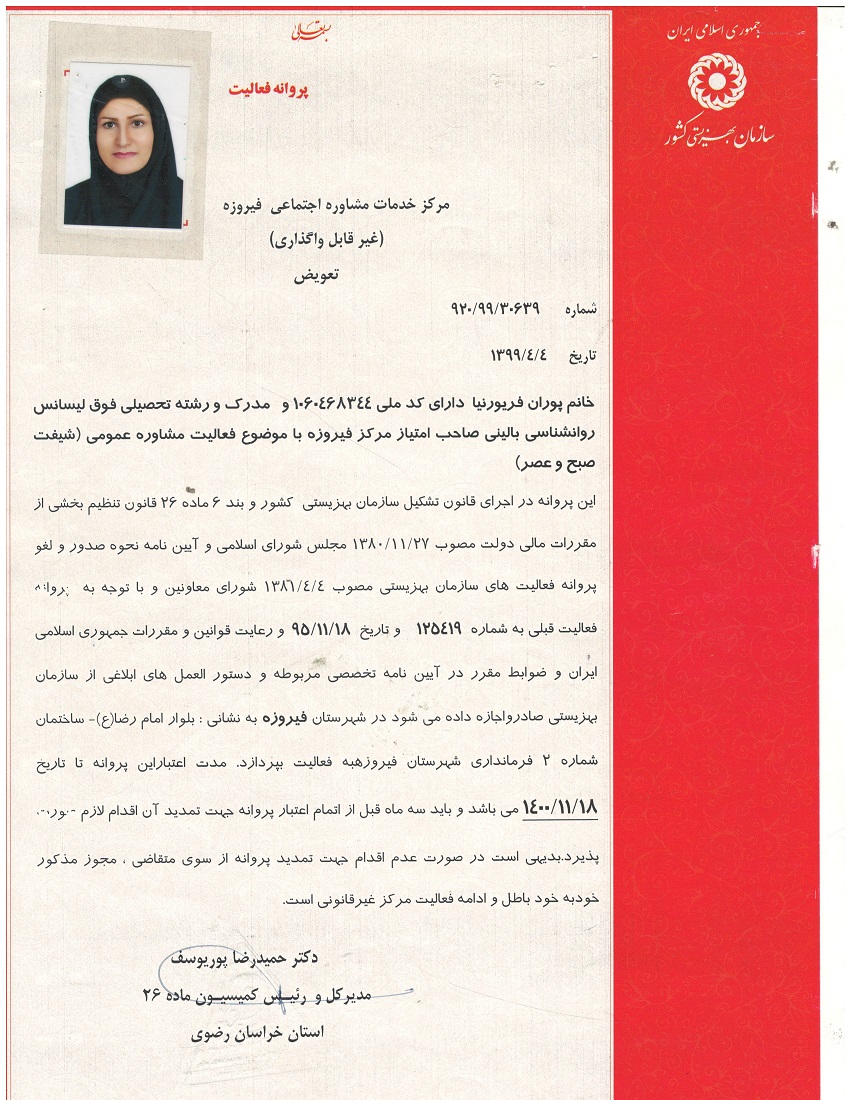 بسمه تعالی
جمهوری اسلامی ایران
سازمان بهزیستی کشور
پروانه فعالیت
مرکز خدمات مشاوره اجتماعی فیروزه
(غیر قابل واگذاری)
تعویض
شماره ۹۲۰/۹۹/۳۰۶۳۹
تاریخ ۱۳۹۹/۴/۴
خانم پوران فریورنیا دارای کد ملی ۱۰۶۰۴۶۸۳۴۴ و مدرک و رشته تحصیلی فوق لیسانس
روانشناسی بالینی صاحب امتیاز مرکز فیروزه با موضوع فعالیت مشاوره عمومی (شیفت
صبح و عصر)
این پروانه در اجرای قانون تشکیل سازمان بهزیستی کشور و بند ۶ ماده ۲۶ قانون تنظیم بخشی از
مقررات مالی دولت مصوب ۱۳۸۰/۱۱/۲۷ مجلس شورای اسلامی و آیین نامه نحوه صدور و لغو
پروانه فعالیت های سازمان بهزیستی مصوب ۱۳۸۶/۴/۴ شورای معاونین و با توجه به پروانه
فعالیت قبلی به شماره ۱۲۵۴۱۹ و تاریخ ۹۵/۱۱/۱۸ و رعایت قوانین و مقررات جمهوری اسلامی
ایران و ضوابط مقرر در آیین نامه تخصصی مربوطه و دستور العمل های ابلاغی از سازمان
بهزیستی صادرواجازه داده می شود در شهرستان فیروزه به نشانی : بلوار امام رضا(ع)- ساختمان
شماره ۲ فرمانداری شهرستان فیروزهبه فعالیت بپردازد. مدت اعتباراین پروانه تا تاریخ
۱۴۰۰/۱۱/۱۸ می باشد و باید سه ماه قبل از اتمام اعتبار پروانه جهت تمدید آن اقدام لازم
پذیرد.بدیهی است در صورت عدم اقدام جهت تمدید پروانه از سوی متقاضی ، مجوز مذکور
خودبه خود باطل و ادامه فعالیت مرکز غیرقانونی است.
دکتر حمیدرضا پوریوسف
مدیرکل و رئیس کمیسیون ماده ۲۶
استان خراسان رضوی